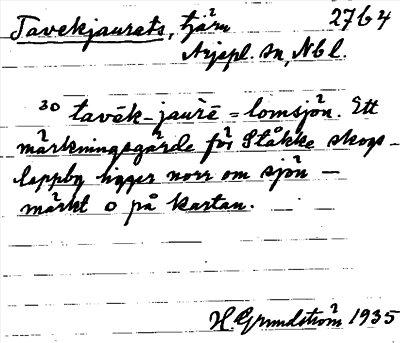 Tavekjaurats, tjärn 27b4
Arjepl. sn, Nbl.
30 tavēk-jaurē = lomsjön. Ett
märkningsgärde för Ståkke skogs-
lappby ligger norr om sjön –
märkt o på kartan.
H. Grundström 1935